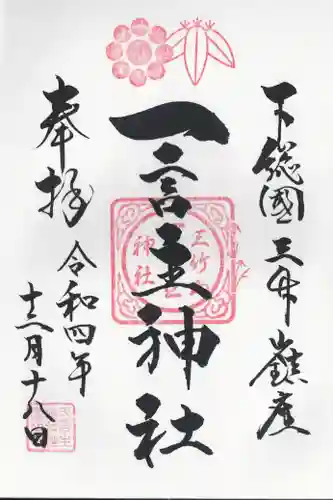 下総國三竹山鎮座
一言主神社
奉拝
令和四年
十二月十八日
三竹山
神社